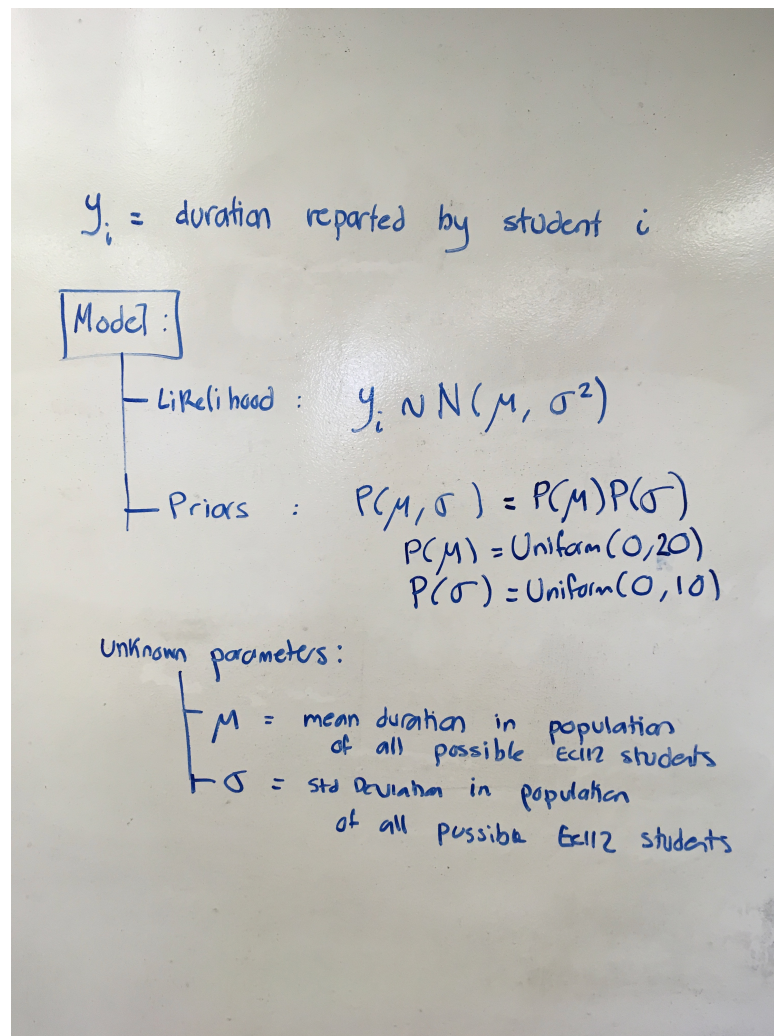 y_i = duration reported by student i
Model :
Likelihood : y_i ~ N(μ, σ²)
Priors : P(μ, σ) = P(μ)P(σ)
P(μ) = Uniform(0,20)
P(σ) = Uniform(0,10)
Unknown parameters:
μ = mean duration in population
of all possible Ec112 students
σ = Std Deviation in population
of all possible Ec112 students